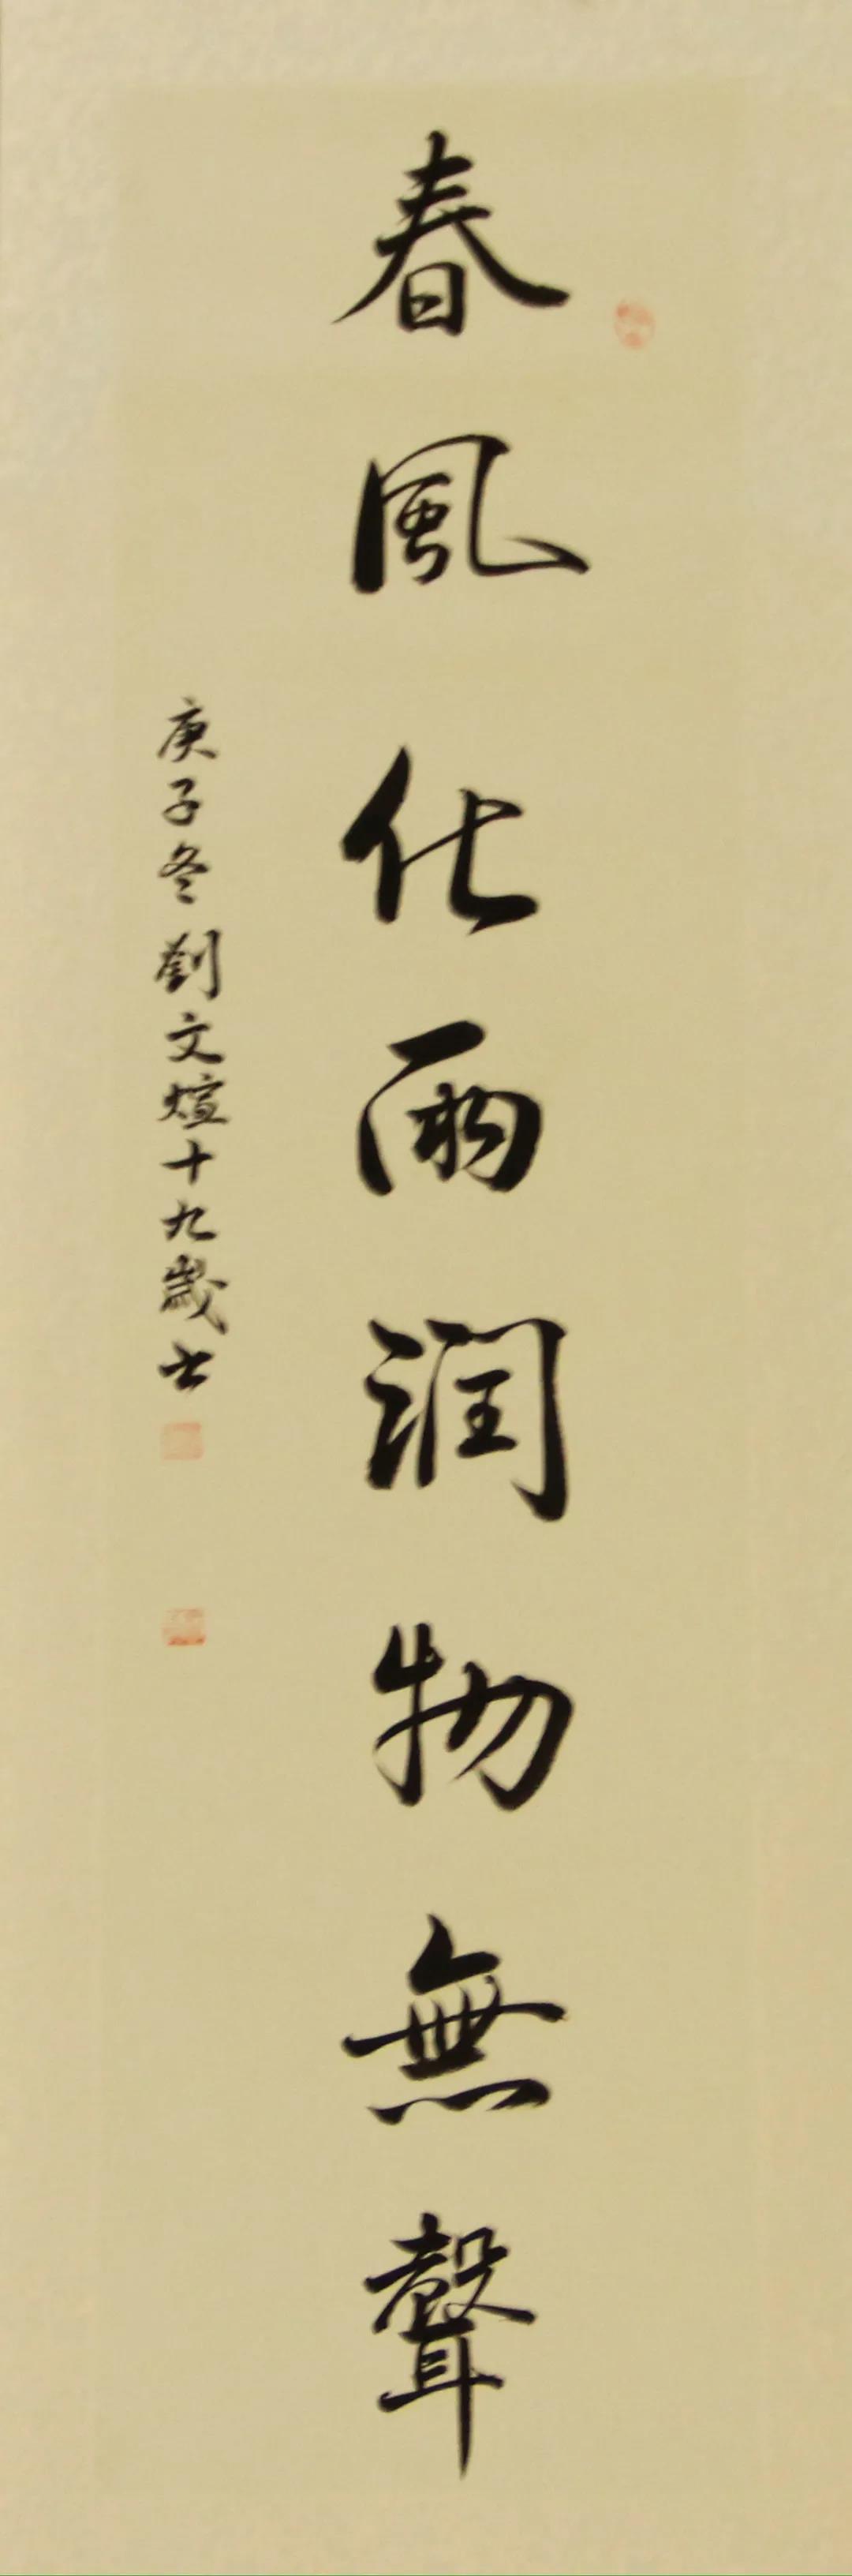 春風化雨润物無聲
庚子冬劉文煊十九歲書